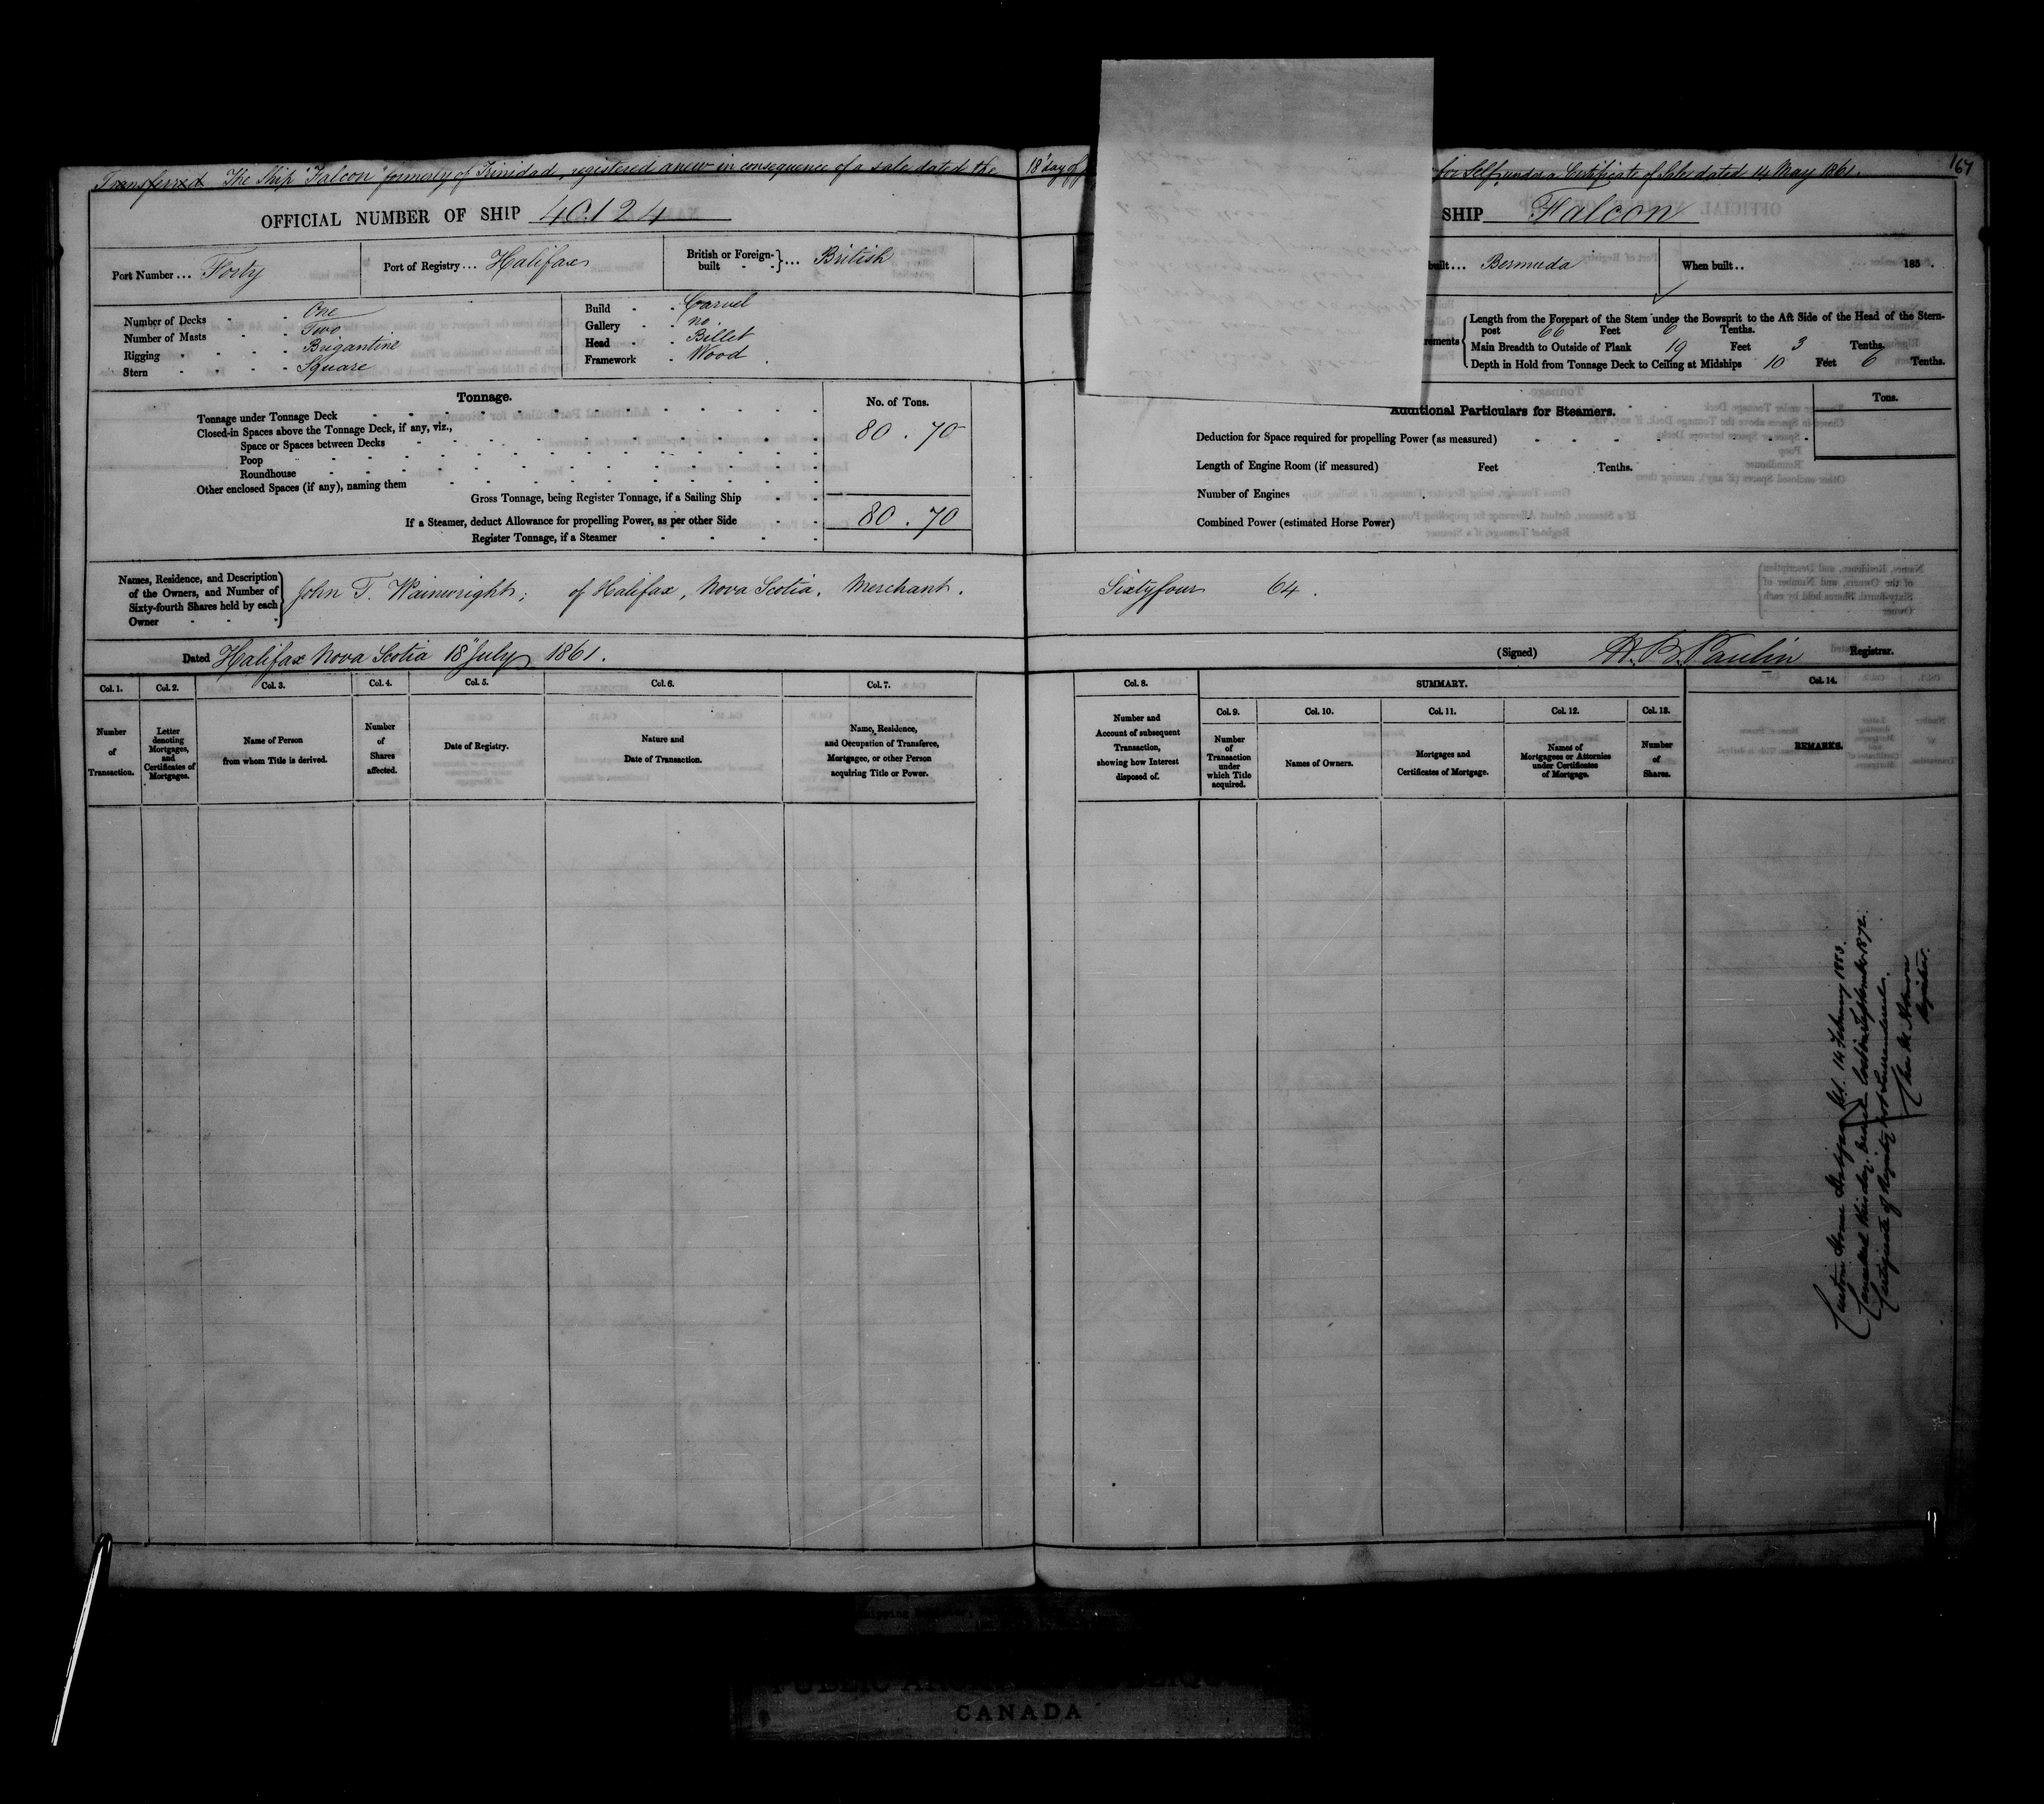 Transferred The Ship "Falcon" formerly of Trinidad, registered anew in consequence of a sale dated the 18" day of
for Self, under a Certificate of Sale dated 14 May 1861.
167
OFFICIAL NUMBER OF SHIP 40124
SHIP Falcon
Port Number ... Forty
Port of Registry ... Halifax
British or Foreign-built - - } ... British
built ... Bermuda
When built .. 185 .
Number of Decks - - One
Number of Masts - - Two
Rigging - - - - Brigantine
Stern - - - - Square
Build - - Carvel
Gallery - - no
Head - - Billet
Framework - Wood
Length from the Forepart of the Stem under the Bowsprit to the Aft Side of the Head of the Stern-
post 66 Feet 6 Tenths.
Main Breadth to Outside of Plank 19 Feet 3 Tenths.
Depth in Hold from Tonnage Deck to Ceiling at Midships 10 Feet 6 Tenths.
Tonnage.
No. of Tons.
Tonnage under Tonnage Deck
Closed-in Spaces above the Tonnage Deck, if any, viz.,
80 . 70
Space or Spaces between Decks
Poop
Roundhouse
Other enclosed Spaces (if any), naming them
Gross Tonnage, being Register Tonnage, if a Sailing Ship
If a Steamer, deduct Allowance for propelling Power, as per other Side
80 . 70
Register Tonnage, if a Steamer
Additional Particulars for Steamers.
Tons.
Deduction for Space required for propelling Power (as measured)
Length of Engine Room (if measured) Feet Tenths.
Number of Engines
Combined Power (estimated Horse Power)
Names, Residence, and Description
of the Owners, and Number of
Sixty-fourth Shares held by each
Owner
John T. Wainwright; of Halifax, Nova Scotia, Merchant. Sixtyfour 64.
Dated Halifax Nova Scotia 18" July 1861.
(Signed) H. B. Paulin Registrar.
Col. 1. Col. 2. Col. 3. Col. 4. Col. 5. Col. 6. Col. 7.
Number of Transaction.
Letter denoting Mortgages, and Certificates of Mortgages.
Name of Person from whom Title is derived.
Number of Shares affected.
Date of Registry.
Nature and Date of Transaction.
Name, Residence, and Occupation of Transferee, Mortgagee, or other Person acquiring Title or Power.
Col. 8. SUMMARY. Col. 14.
Col. 9. Col. 10. Col. 11. Col. 12. Col. 13.
Number and Account of subsequent Transaction, showing how Interest disposed of.
Number of Transaction under which Title acquired.
Names of Owners.
Mortgages and Certificates of Mortgage.
Names of Mortgagees or Attornies under Certificates of Mortgage.
Number of Shares.
REMARKS.
Custom House Halifax N.S. 14 February 1883.
Cancelled this day. Vessel Lost in September 1872.
Certificate of Registry not Surrendered.
Registrar.
CANADA